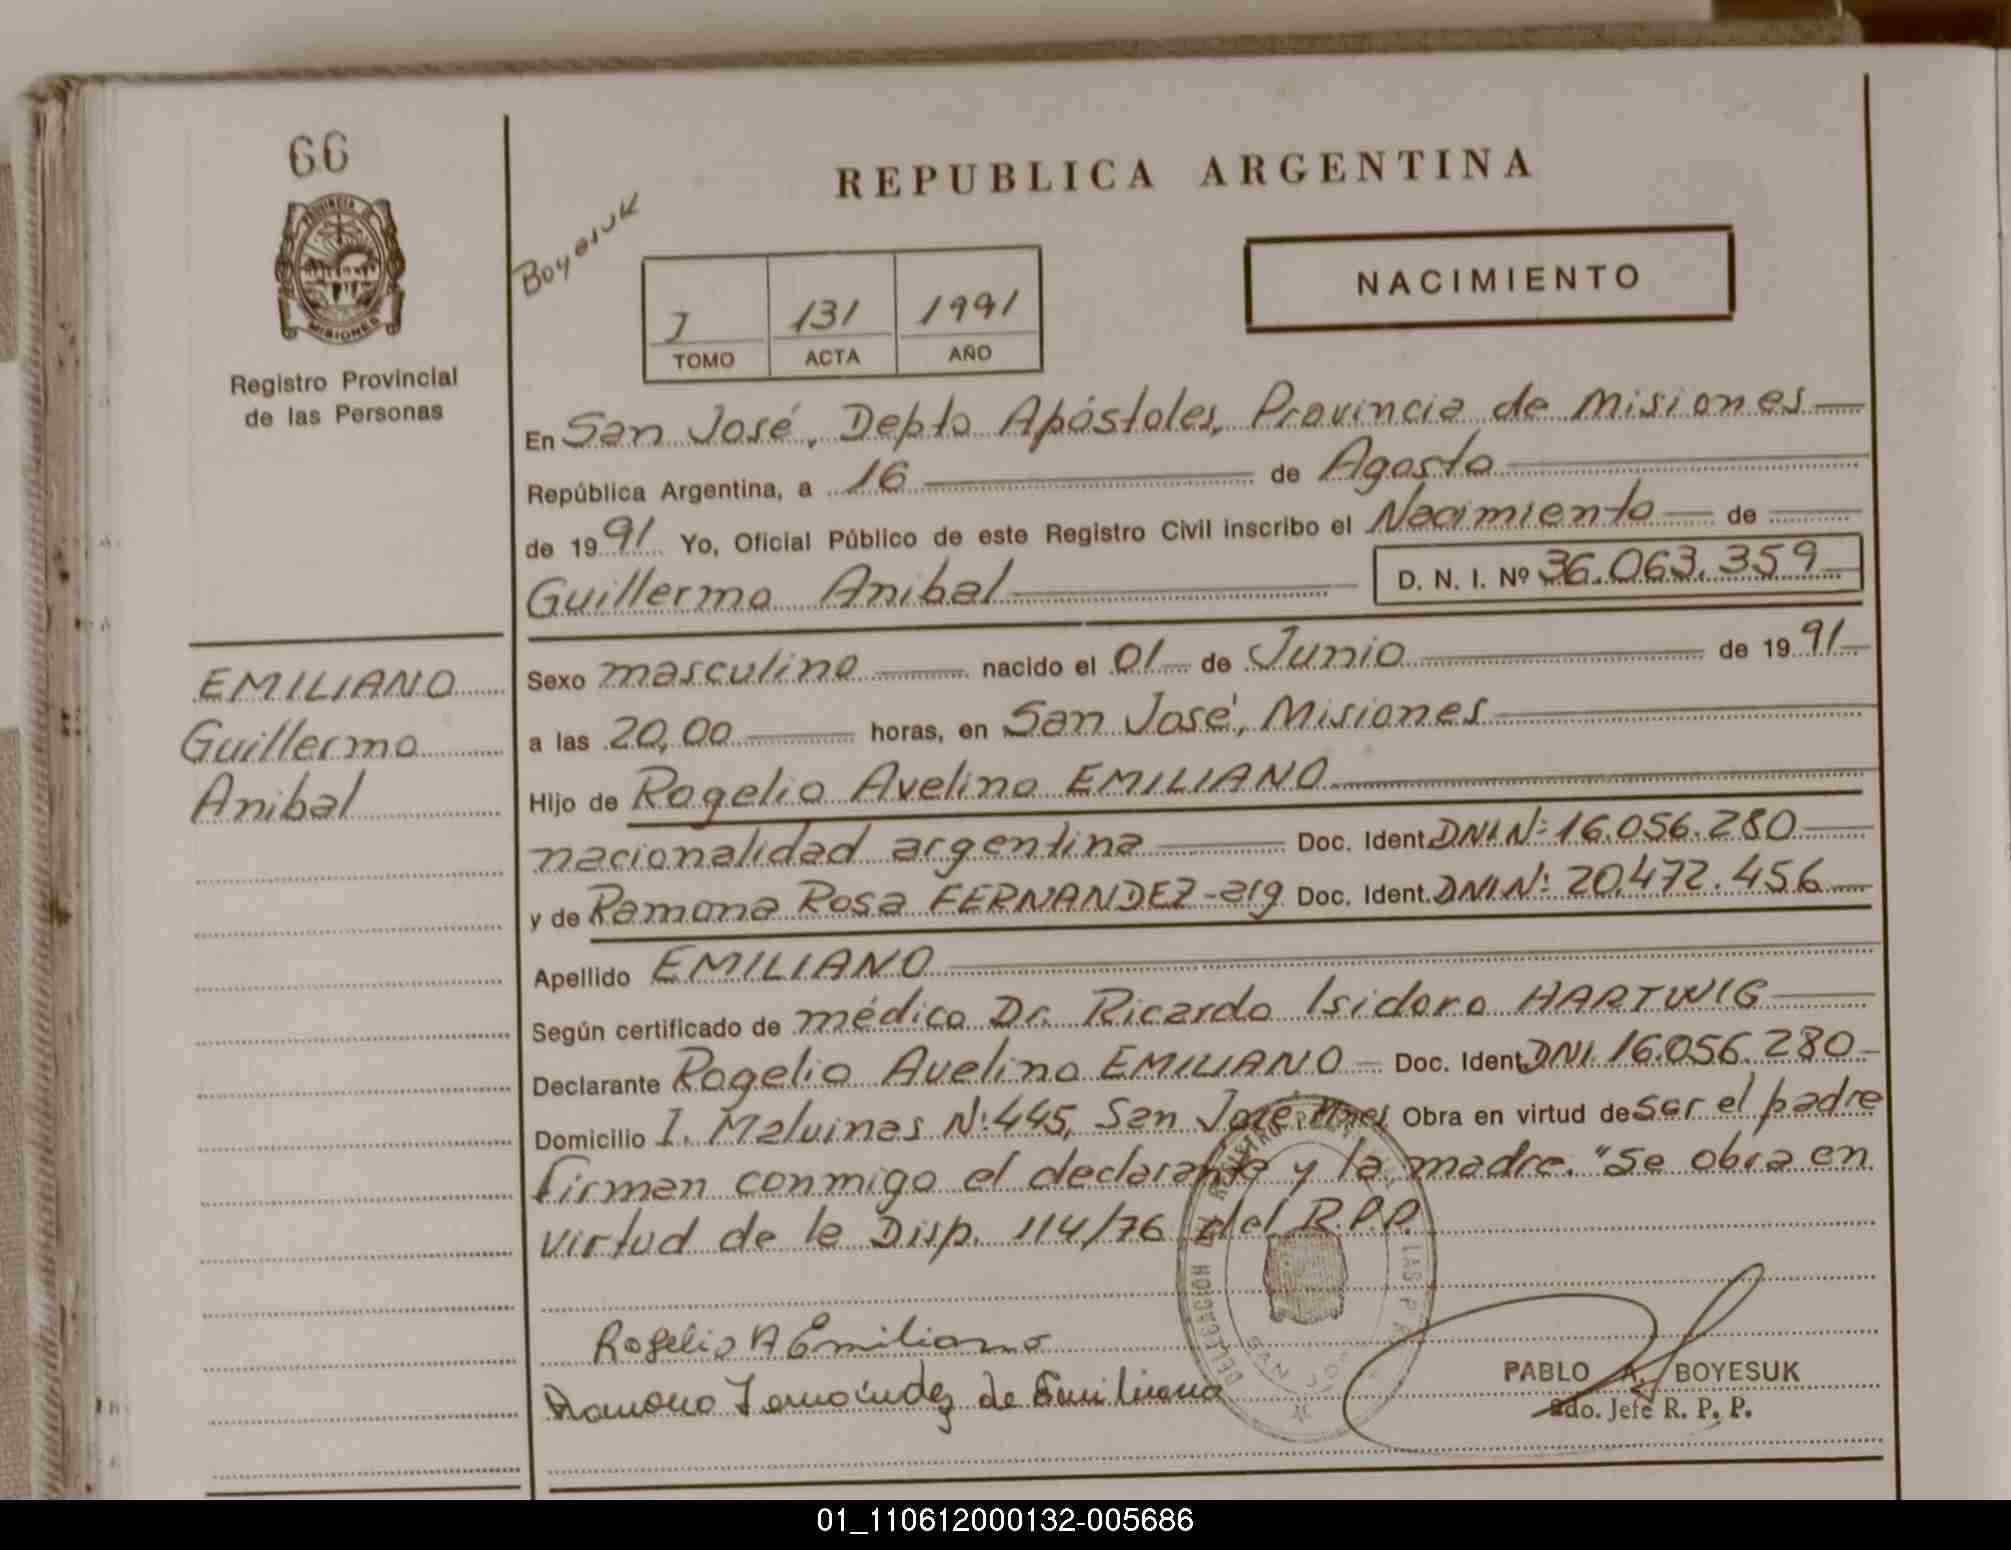 66
PROVINCIA DE
MISIONES
Registro Provincial
de las Personas
EMILIANO
Guillermo
Anibal
Boyesuk
REPUBLICA ARGENTINA
NACIMIENTO
I 131 1991
TOMO ACTA AÑO
En San José, Depto Apóstoles, Provincia de Misiones
República Argentina, a 16 de Agosto
de 1991 Yo, Oficial Público de este Registro Civil inscribo el Nacimiento de
Guillermo Anibal D. N. I. Nº 36.063.359
Sexo masculino nacido el 01 de Junio de 1991
a las 20,00 horas, en San José, Misiones
Hijo de Rogelio Avelino EMILIANO
nacionalidad argentina Doc. Ident. DNI.Nº 16.056.280
y de Ramona Rosa FERNANDEZ-arg Doc. Ident. DNI.Nº 20.472.456
Apellido EMILIANO
Según certificado de médico Dr. Ricardo Isidoro HARTWIG
Declarante Rogelio Avelino EMILIANO Doc. Ident. DNI. 16.056.280
Domicilio I. Malvinas Nº 445, San José Mnes Obra en virtud de ser el padre
firman conmigo el declarante y la madre. "Se obra en
virtud de la Disp. 114/76 del R.P.P.
Rogelio A Emiliano
Ramona Fernández de Emiliano
DELEGACION
SAN JOSE
PABLO A. BOYESUK
2do. Jefe R. P. P.
01_110612000132-005686